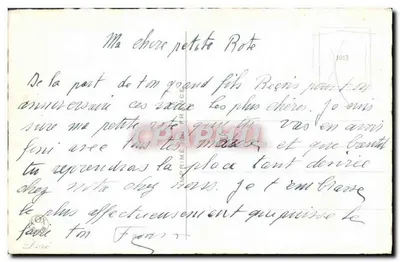 Ma chere petite Rote
De la part de ton grand fils pour ton
anniversaire ces vœux les plus chères. Je suis
sure ma petite que tu vas en avoir
fini avec tous les maux et que bientôt
tu reprendras la place tant désirée
chez nous. Je t'embrasse
le plus affectueusement que puisse le
faire ton